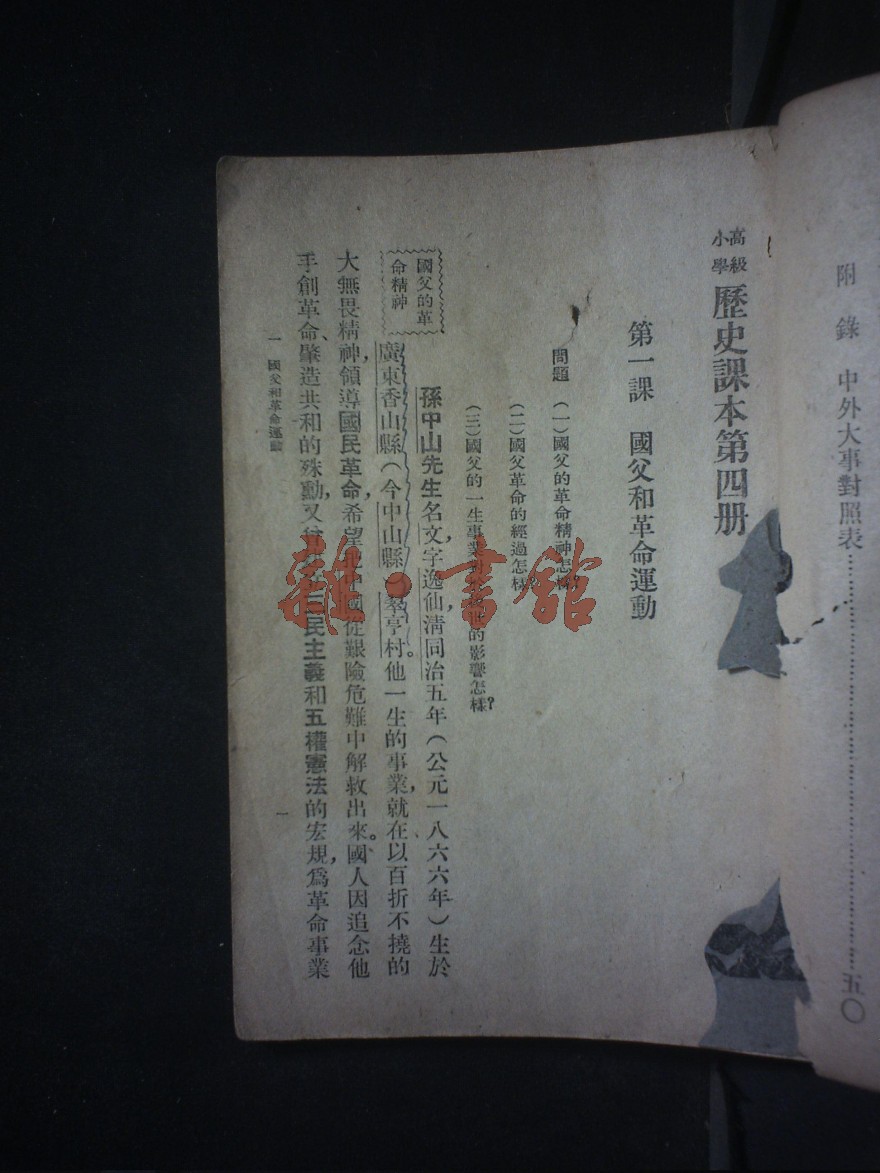 附錄 中外大事對照表……………………五〇
高級
小學
歷史課本第四册
第一課 國父和革命運動
問題 (一)國父的革命精神怎樣?
(二)國父革命的經過怎樣?
(三)國父的一生事業的影響怎樣?
國父的革
命精神
孫中山先生名文,字逸仙,清同治五年(公元一八六六年)生於
廣東香山縣(今中山縣)翠亨村。他一生的事業,就在以百折不撓的
大無畏精神,領導國民革命,希望中國從艱險危難中解救出來。國人因追念他
手創革命、肇造共和的殊勳,又三民主義和五權憲法的宏規,爲革命事業
一 國父和革命運動
一
雜·書館